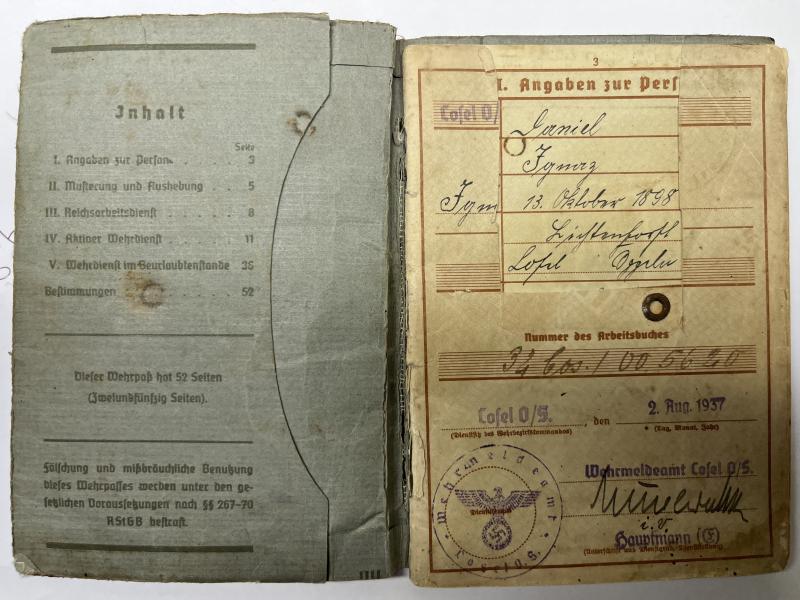 Inhalt
Seite
I. Angaben zur Person . . . . . 3
II. Musterung und Aushebung . . 5
III. Reichsarbeitsdienst . . . . . 8
IV. Aktiver Wehrdienst . . . . . 11
V. Wehrdienst im Beurlaubtenstande 35
Bestimmungen . . . . . 52
Dieser Wehrpaß hat 52 Seiten
(Zweiundfünfzig Seiten).
Fälschung und mißbräuchliche Benutzung
dieses Wehrpasses werden unter den ge-
setzlichen Voraussetzungen nach §§ 267-70
RStGB bestraft.
3
I. Angaben zur Pers
Cosel O/
Daniel
Ignaz
Ign 13. Oktober 1898
Cosel Oppeln
Nummer des Arbeitsbuches
34 Cos. / 00 56 20
Cosel O/S. , den 2. Aug. 1937
(Dienstsitz des Wehrbezirkskommandos) (Tag, Monat, Jahr)
Wehrmeldeamt Cosel O/S.
Wehrmeldeamt
Cosel O.S.
Dienststempel
i.V.
Hauptmann (E)